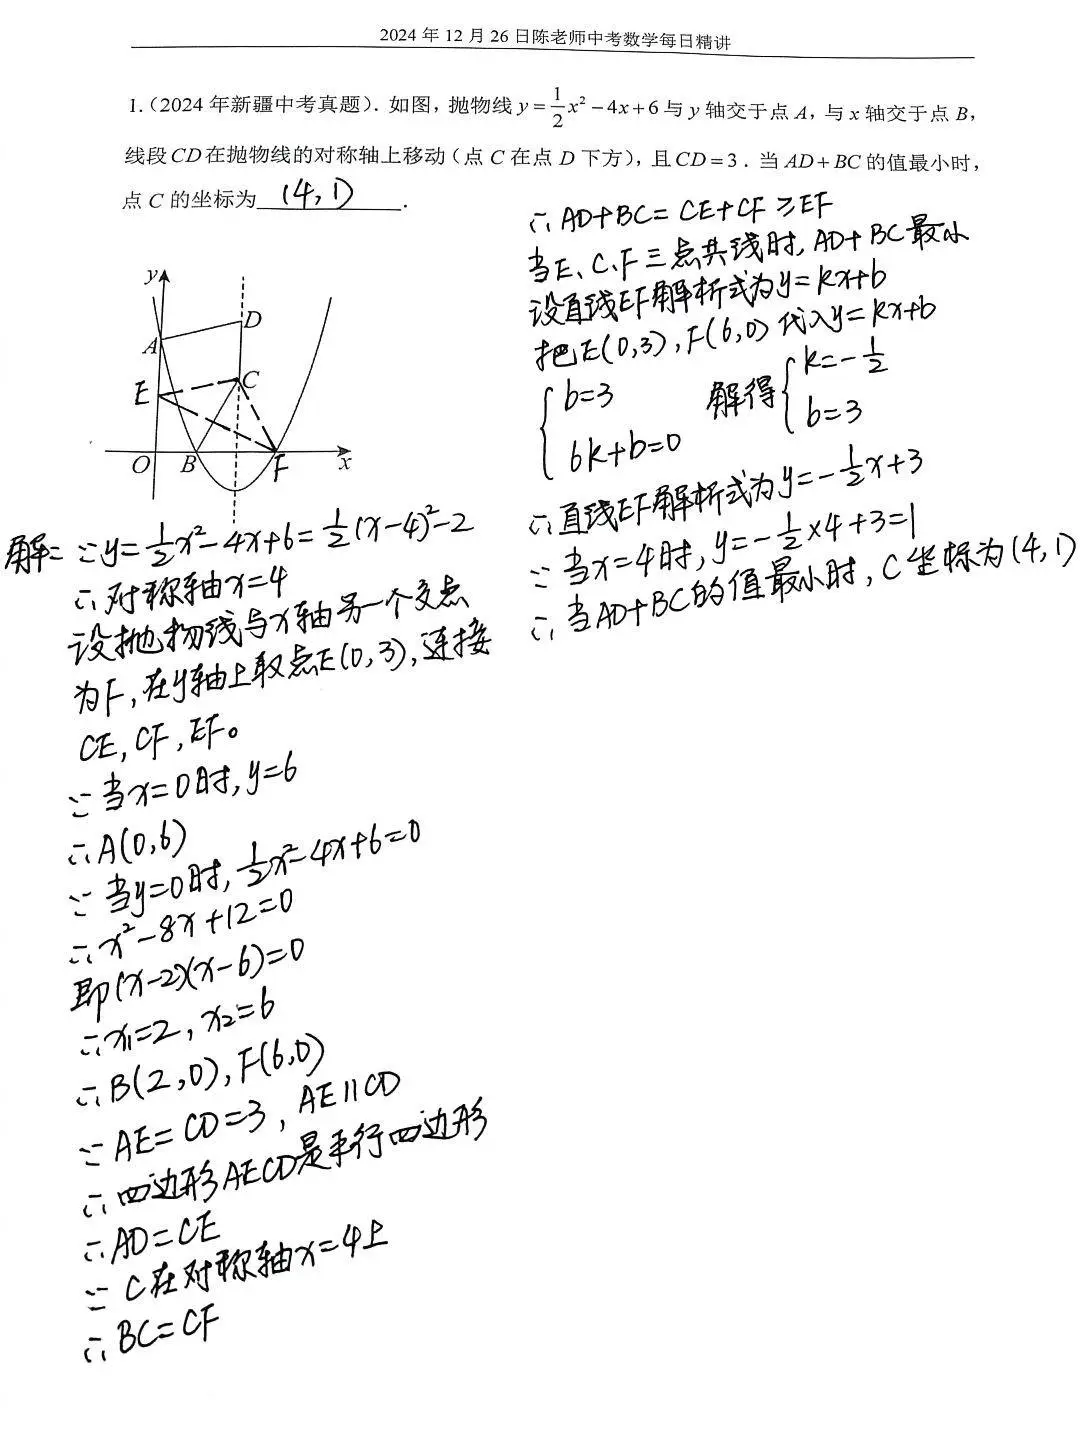 2024年12月26日陈老师中考数学每日精讲
1.(2024年新疆中考真题).如图,抛物线y=\frac{1}{2}x²-4x+6与y轴交于点A,与x轴交于点B,
线段CD在抛物线的对称轴上移动(点C在点D下方),且CD=3.当AD+BC的值最小时,
点C的坐标为(4,1).
y
D
A
E
C
O
B
F
x
解:∵y=\frac{1}{2}x²-4x+6=\frac{1}{2}(x-4)²-2
∴对称轴x=4
设抛物线与x轴另一个交点
为F,在y轴上取点E(0,3),连接
CE,CF,EF。
∵当x=0时,y=6
∴A(0,6)
∵当y=0时,\frac{1}{2}x²-4x+6=0
∴x²-8x+12=0
即(x-2)(x-6)=0
∴x₁=2,x₂=6
∴B(2,0),F(6,0)
∵AE=CD=3,AE∥CD
∴四边形AECD是平行四边形
∴AD=CE
∵C在对称轴x=4上
∴BC=CF
∴AD+BC=CE+CF≥EF
当E、C、F三点共线时,AD+BC最小
设直线EF解析式为y=kx+b
把E(0,3),F(6,0)代入y=kx+b
{b=3 6k+b=0 解得{k=-\frac{1}{2} b=3
∴直线EF解析式为y=-\frac{1}{2}x+3
∵当x=4时,y=-\frac{1}{2}×4+3=1
∴当AD+BC的值最小时,C坐标为(4,1)